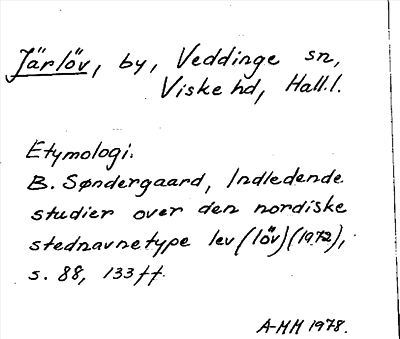 Järlöv, by, Veddinge sn,
Viske hd, Hall.l.
Etymologi.
B. Søndergaard, Indledende
studier over den nordiske
stednavnetype lev (löv) (1972),
s. 88, 133 ff.
A-HH 1978.